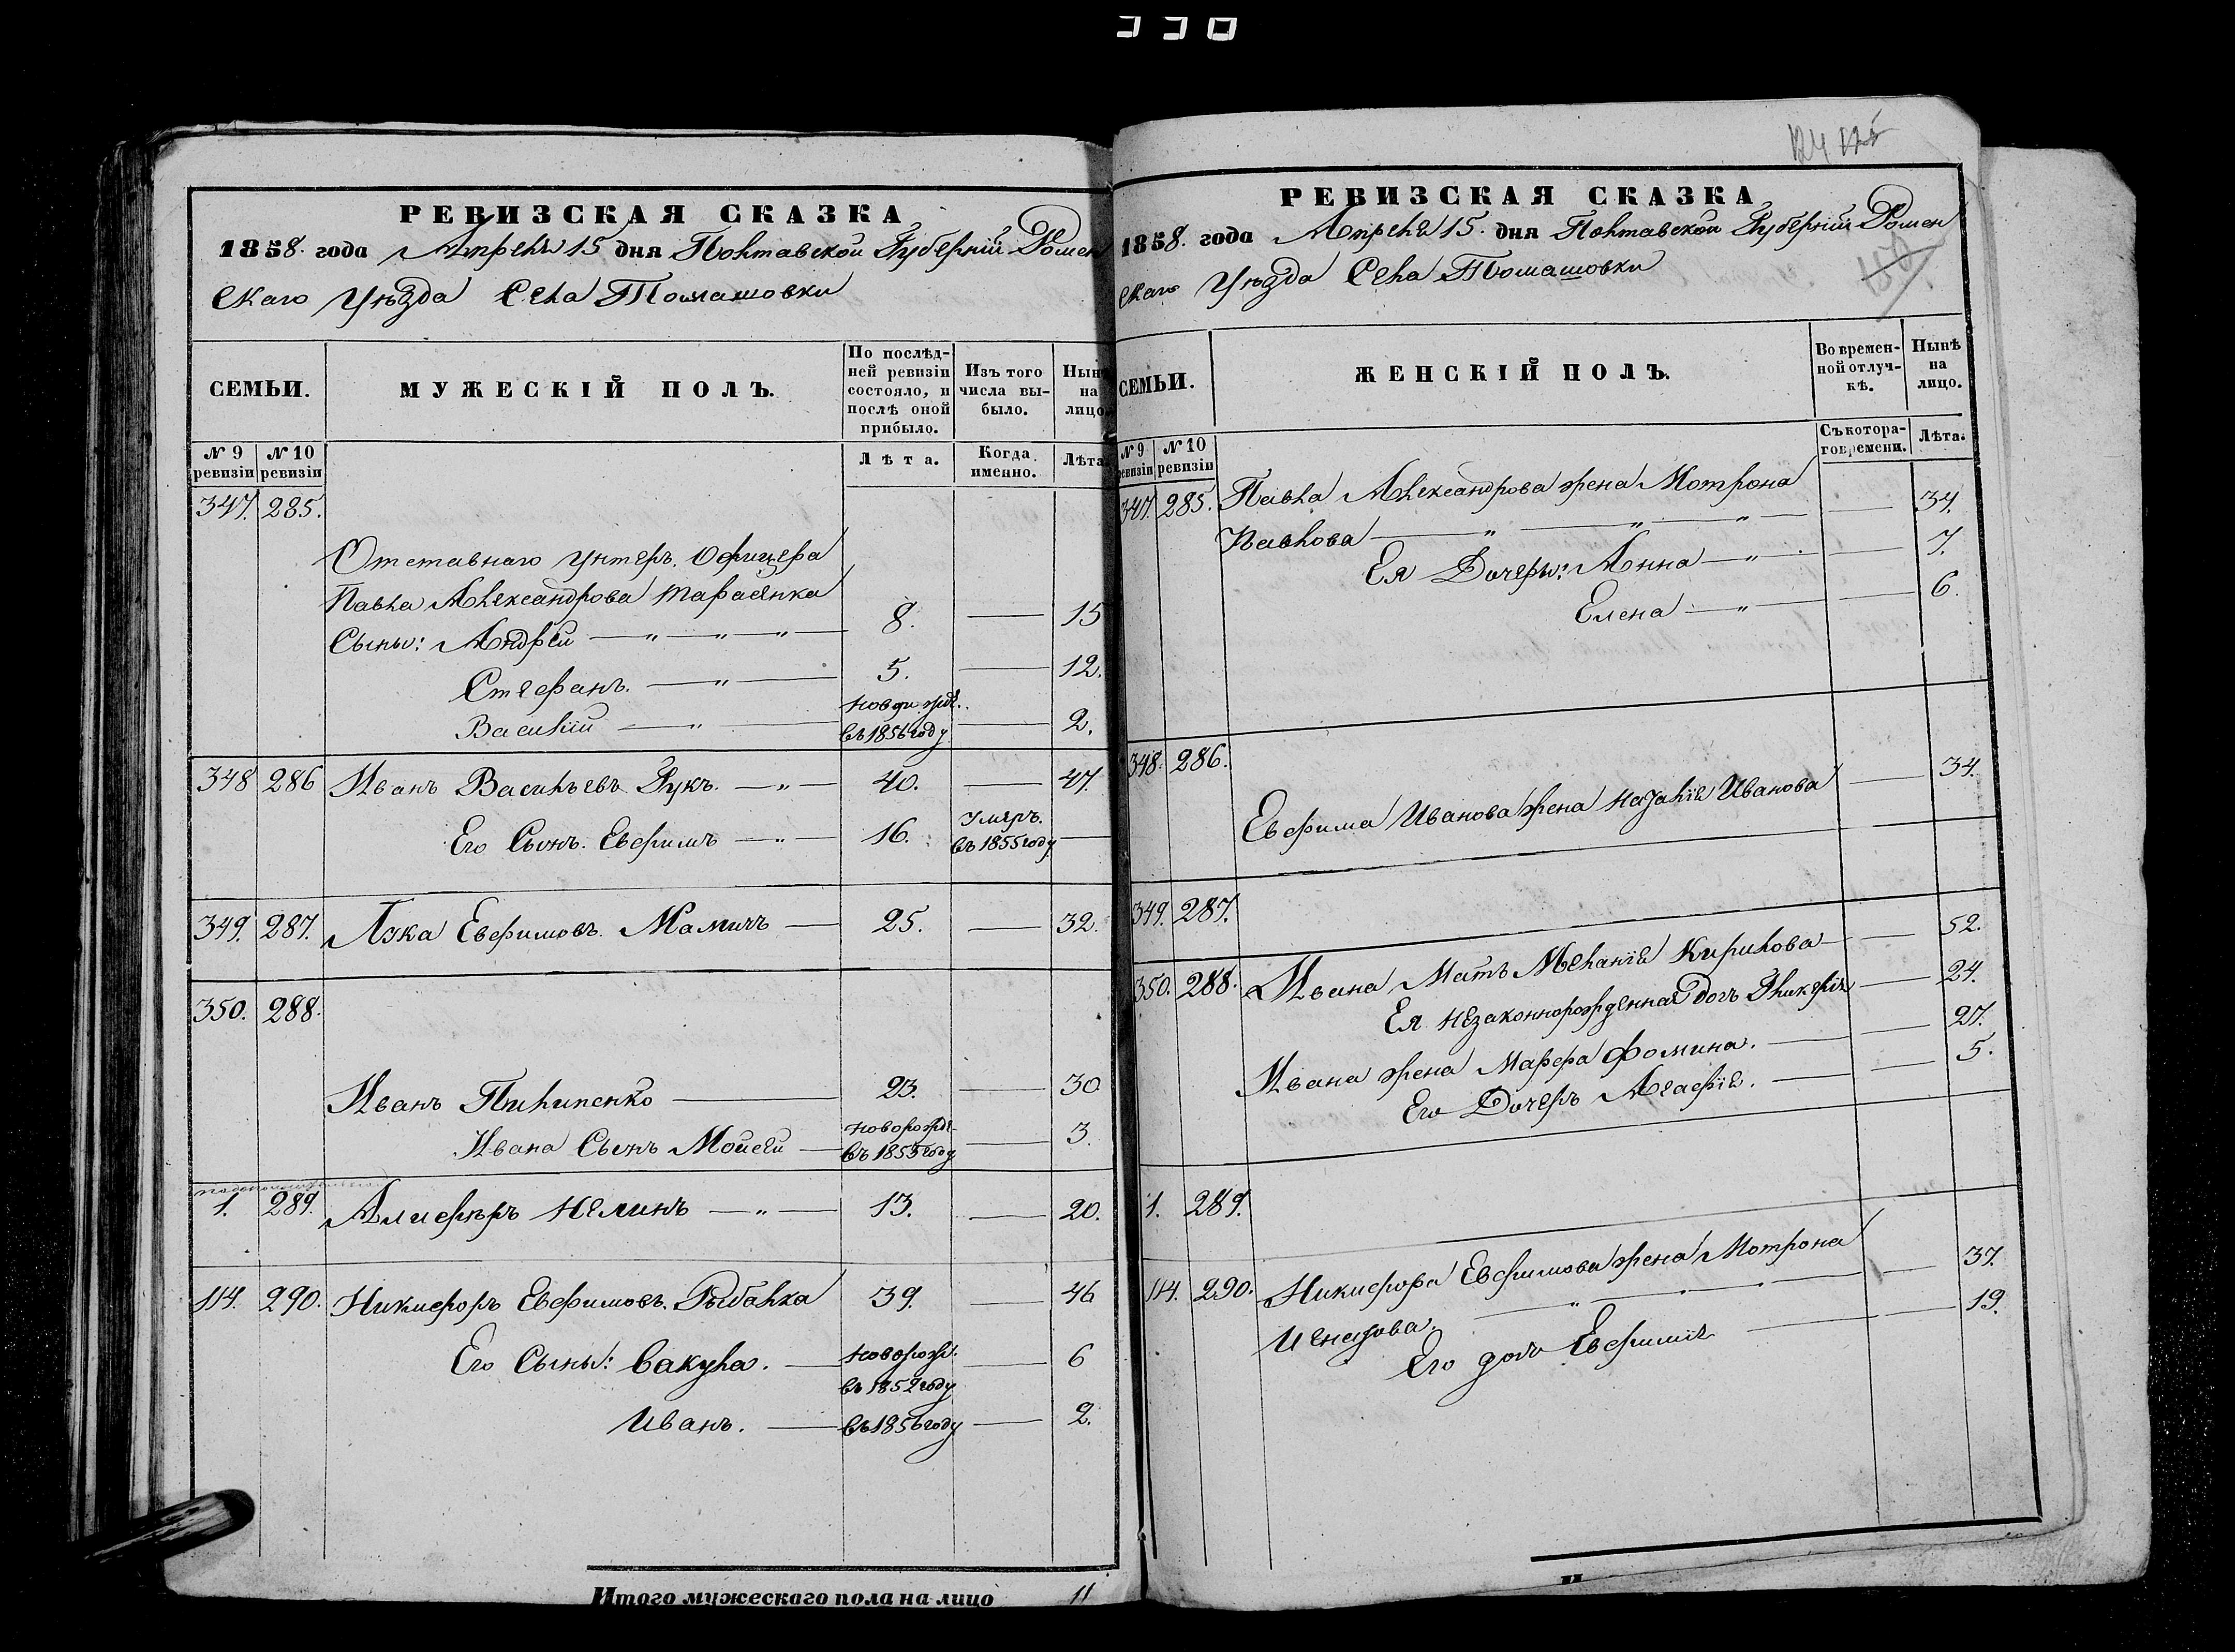 330
РЕВИЗСКАЯ СКАЗКА
1858. года Апреля 15 дня Полтавской Губерніи Ромен
скаго Уѣзда Села Томашовки
СЕМЬИ.
МУЖЕСКІЙ ПОЛЪ.
По послѣд-
ней ревизіи
состояло, и
послѣ оной
прибыло.
Изъ того
числа вы-
было.
Нынѣ
на
лицо.
№ 9 ревизіи
№ 10 ревизіи
Лѣта.
Когда именно.
Лѣта.
347. 285.
Отставнаго Унтеръ. Офицера
Павла Александрова Тарасенка
Сыны: Андрей — „ — „ — „ — 8. — 15
Стефанъ. — „ — 5. — 12.
Василій — „ — новорожд. въ 1856 году — 2.
348 286 Иванъ Васильевъ Гукъ. — „ — 40. — 47.
Его Сынъ. Евфимъ — „ — 16. Умеръ. въ 1855 году —
349. 287. Лука Евфимовъ. — 25. — 32.
350. 288.
Иванъ Пилипенко — 23. — 30
Ивана Сынъ Мойсей — новорожд. въ 1855 году — 3.
1. 289. — „ — 13. — 20.
114. 290. Никифоръ Евфимовъ. Рыбалка 39. — 46
Его Сыны: Вакула. — новорож. въ 1852 году — 6
Иванъ. — въ 1856 году — 2.
Итого мужескаго пола на лицо 11
124 125
РЕВИЗСКАЯ СКАЗКА
1858. года Апреля 15. дня Полтавской Губерніи Ромен
скаго Уѣзда Села Томашовки
СЕМЬИ.
ЖЕНСКІЙ ПОЛЪ.
Во времен-
ной отлуч-
кѣ.
Нынѣ
на
лицо.
№ 9 ревизіи
№ 10 ревизіи
Съ котора-
го времени.
Лѣта.
347. 285. Павла Александрова жена Мотрона
Павлова — „ — „ — „ — — 34.
Ея Дочеры: Анна — „ — — 7.
Елена — „ — — 6.
348. 286.
Евфима Иванова жена Наталія Иванова — 34.
349. 287.
350. 288. Ивана Мать Меланія Кирилова — — 52.
Ея незаконнорожденная дочь Гликерія — 24.
Ивана жена Марфа Фомина. — — 27.
Его Дочерь Агафія. — — 5.
1. 289.
114. 290. Никифора Евфимова жена Мотрона
— „ — — 37.
Его дочь Евфимія — — 19.